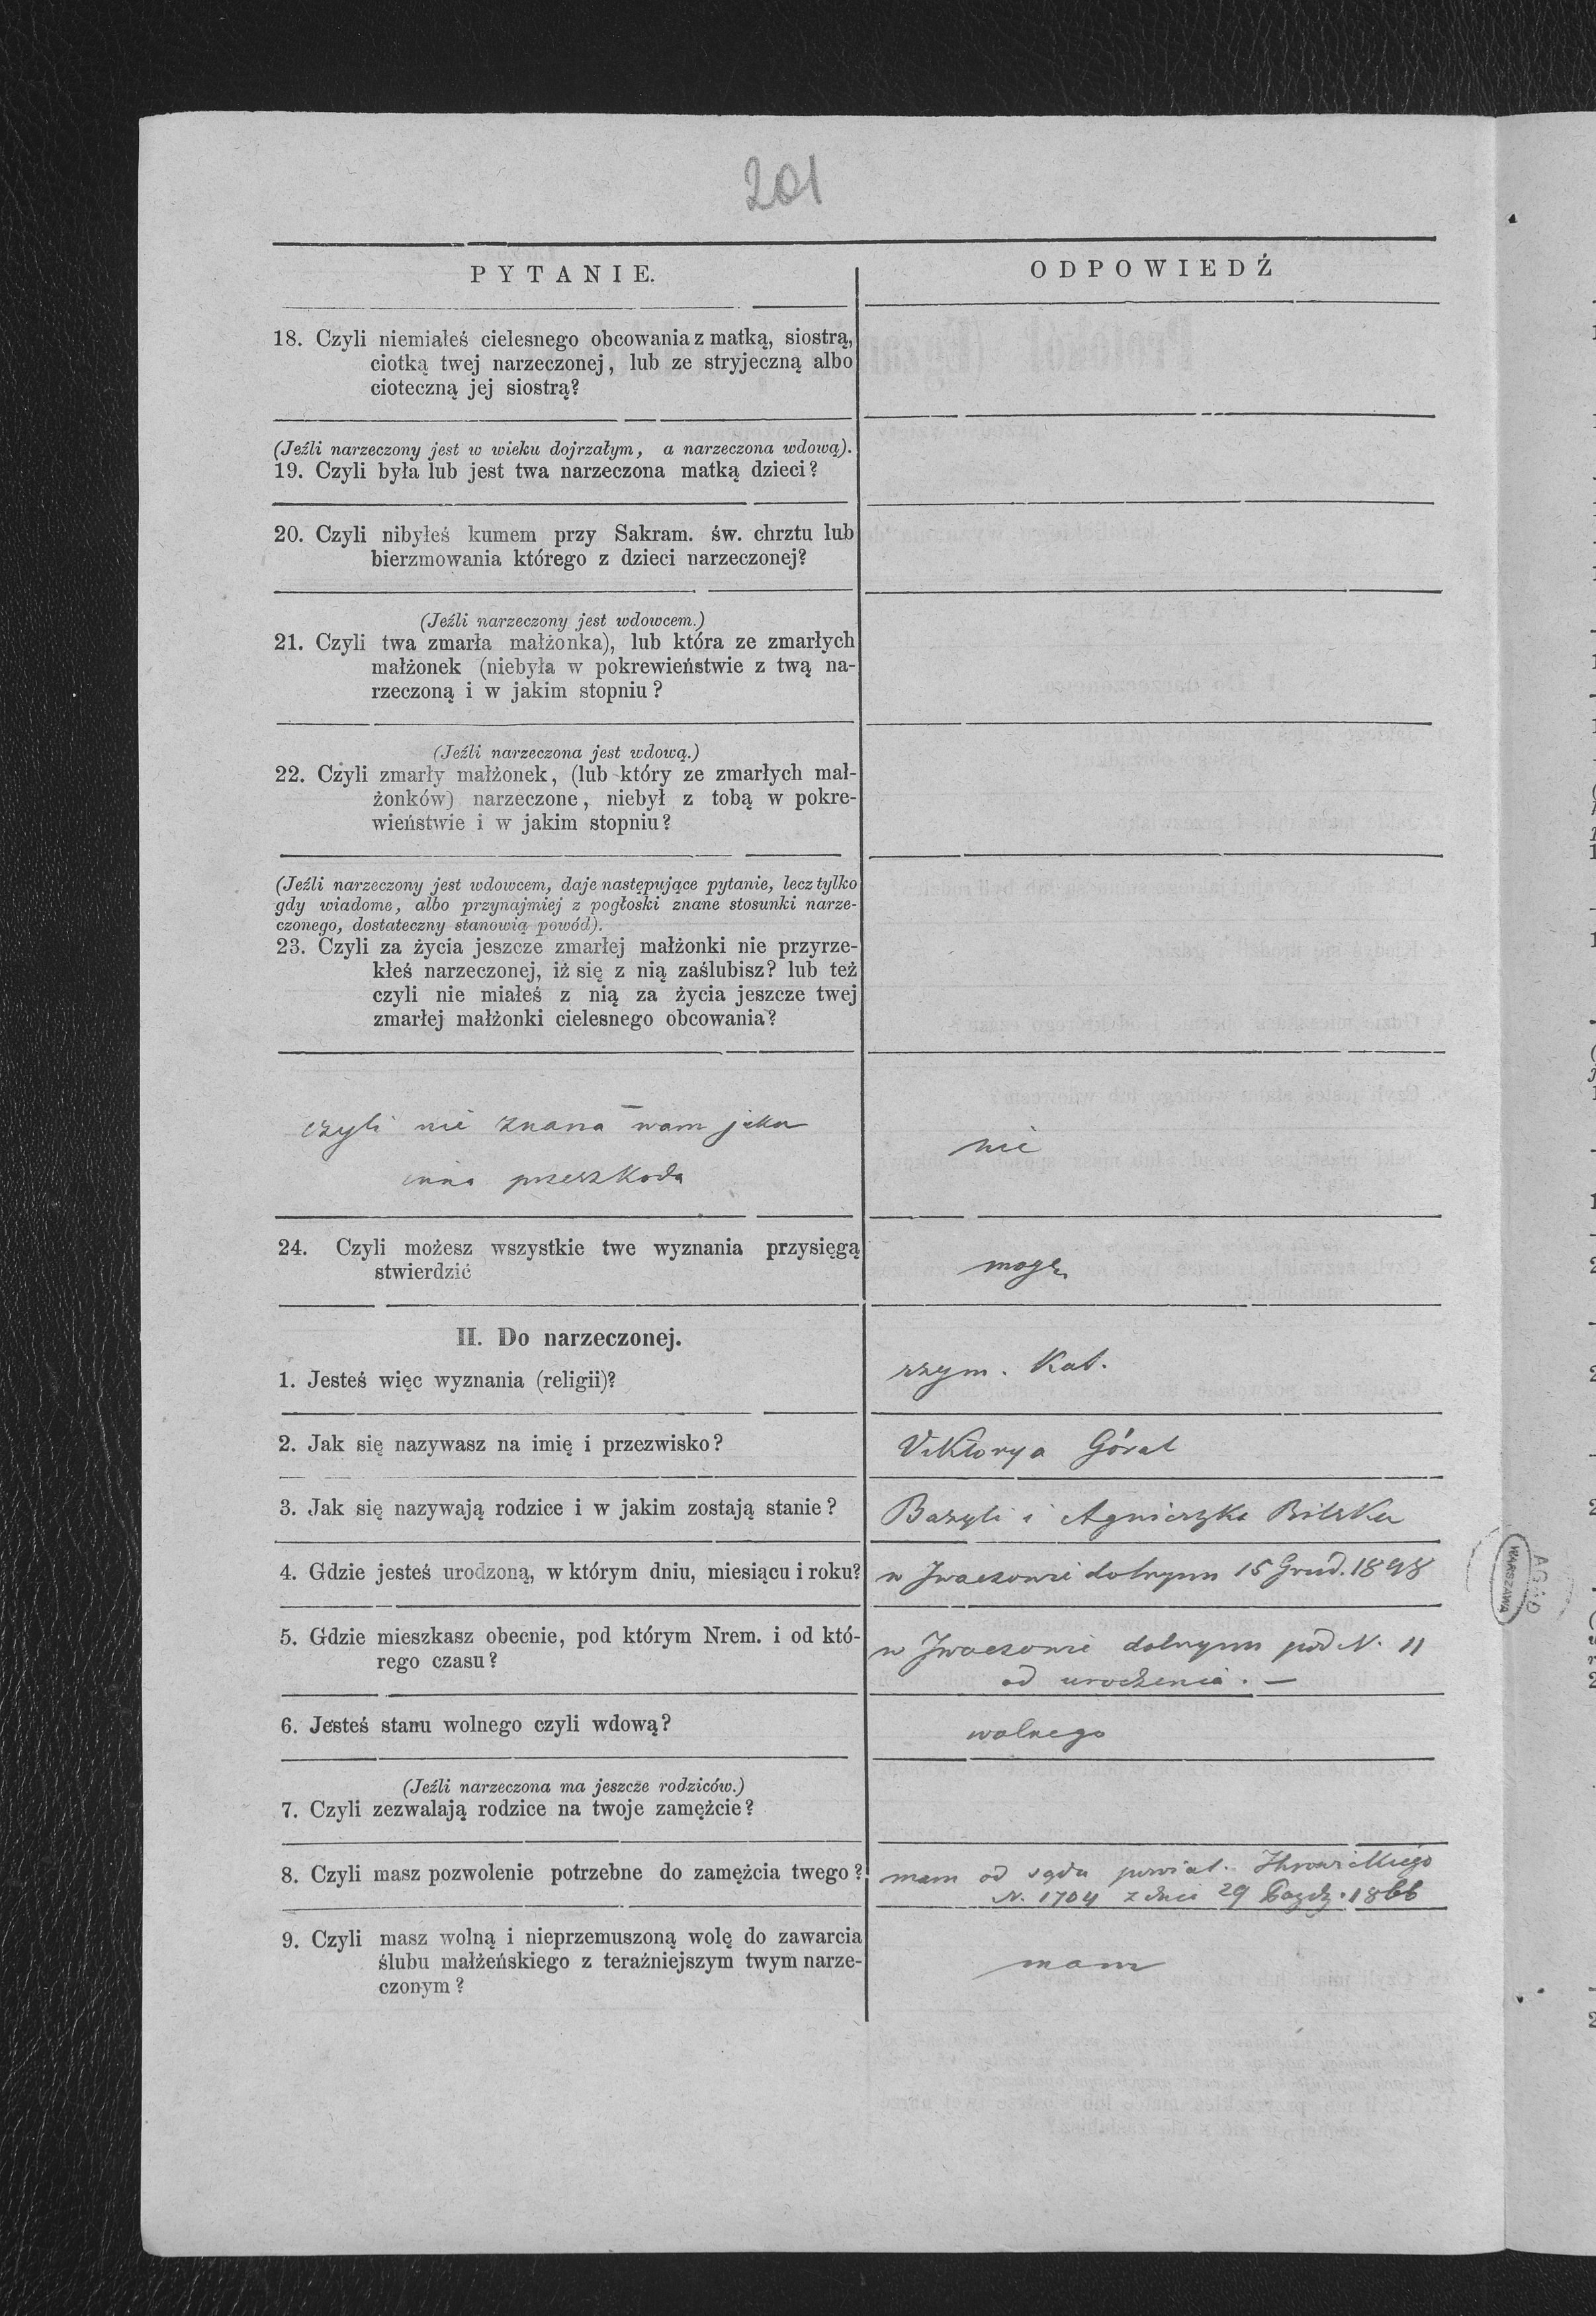 201
PYTANIE.
ODPOWIEDŹ
18. Czyli niemiałeś cielesnego obcowania z matką, siostrą,
ciotką twej narzeczonej, lub ze stryjeczną albo
cioteczną jej siostrą?
(Jeźli narzeczony jest w wieku dojrzałym, a narzeczona wdową).
19. Czyli była lub jest twa narzeczona matką dzieci?
20. Czyli nibyłeś kumem przy Sakram. św. chrztu lub
bierzmowania którego z dzieci narzeczonej?
(Jeźli narzeczony jest wdowcem.)
21. Czyli twa zmarła małżonka), lub która ze zmarłych
małżonek (niebyła w pokrewieństwie z twą na-
rzeczoną i w jakim stopniu?
(Jeźli narzeczona jest wdową.)
22. Czyli zmarły małżonek, (lub który ze zmarłych mał-
żonków) narzeczone, niebył z tobą w pokre-
wieństwie i w jakim stopniu?
(Jeźli narzeczony jest wdowcem, daje następujące pytanie, lecz tylko
gdy wiadome, albo przynajmiej z pogłoski znane stosunki narze-
czonego, dostateczny stanowią powód).
23. Czyli za życia jeszcze zmarłej małżonki nie przyrze-
kłeś narzeczonej, iż się z nią zaślubisz? lub też
czyli nie miałeś z nią za życia jeszcze twej
zmarłej małżonki cielesnego obcowania?
czyli nie znana wam jaka
inna przeszkoda
nie
24. Czyli możesz wszystkie twe wyznania przysięgą
stwierdzić
mogę
II. Do narzeczonej.
1. Jesteś więc wyznania (religii)?
rzym. Kat.
2. Jak się nazywasz na imię i przezwisko?
Viktorya Góral
3. Jak się nazywają rodzice i w jakim zostają stanie?
Bazyli i Agnieszka Bilska
4. Gdzie jesteś urodzoną, w którym dniu, miesiącu i roku?
w Iwaczowie dolnym 15 Grud. 1848
5. Gdzie mieszkasz obecnie, pod którym Nrem. i od któ-
rego czasu?
w Iwaczowie dolnym pod N. 11
od urodzenia. —
6. Jesteś stanu wolnego czyli wdową?
wolnego
(Jeźli narzeczona ma jeszcze rodziców.)
7. Czyli zezwalają rodzice na twoje zamężcie?
8. Czyli masz pozwolenie potrzebne do zamężcia twego?
mam od sądu powiat.
N. 1704 z dnia 29 Pazdz. 1866
9. Czyli masz wolną i nieprzemuszoną wolę do zawarcia
ślubu małżeńskiego z teraźniejszym twym narze-
czonym?
mam
AGAD
WARSZAWA